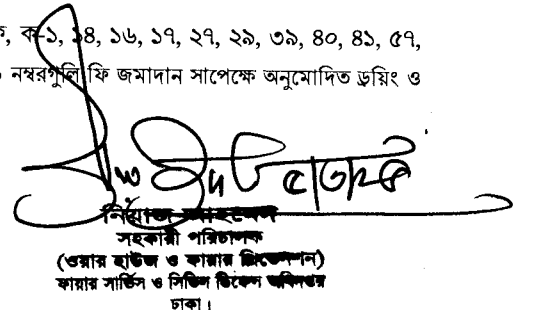 ক-১, ১৪, ১৬, ১৭, ২৭, ২৯, ৩৯, ৪০, ৪১, ৫৭,
নম্বরগুলি ফি জমাদান সাপেক্ষে অনুমোদিত ড্রয়িং ও
সহকারী পরিচালক
(ওয়ার হাউজ ও ফায়ার প্রিভেনশন)
ফায়ার সার্ভিস ও সিভিল ডিফেন্স অধিদপ্তর
ঢাকা।